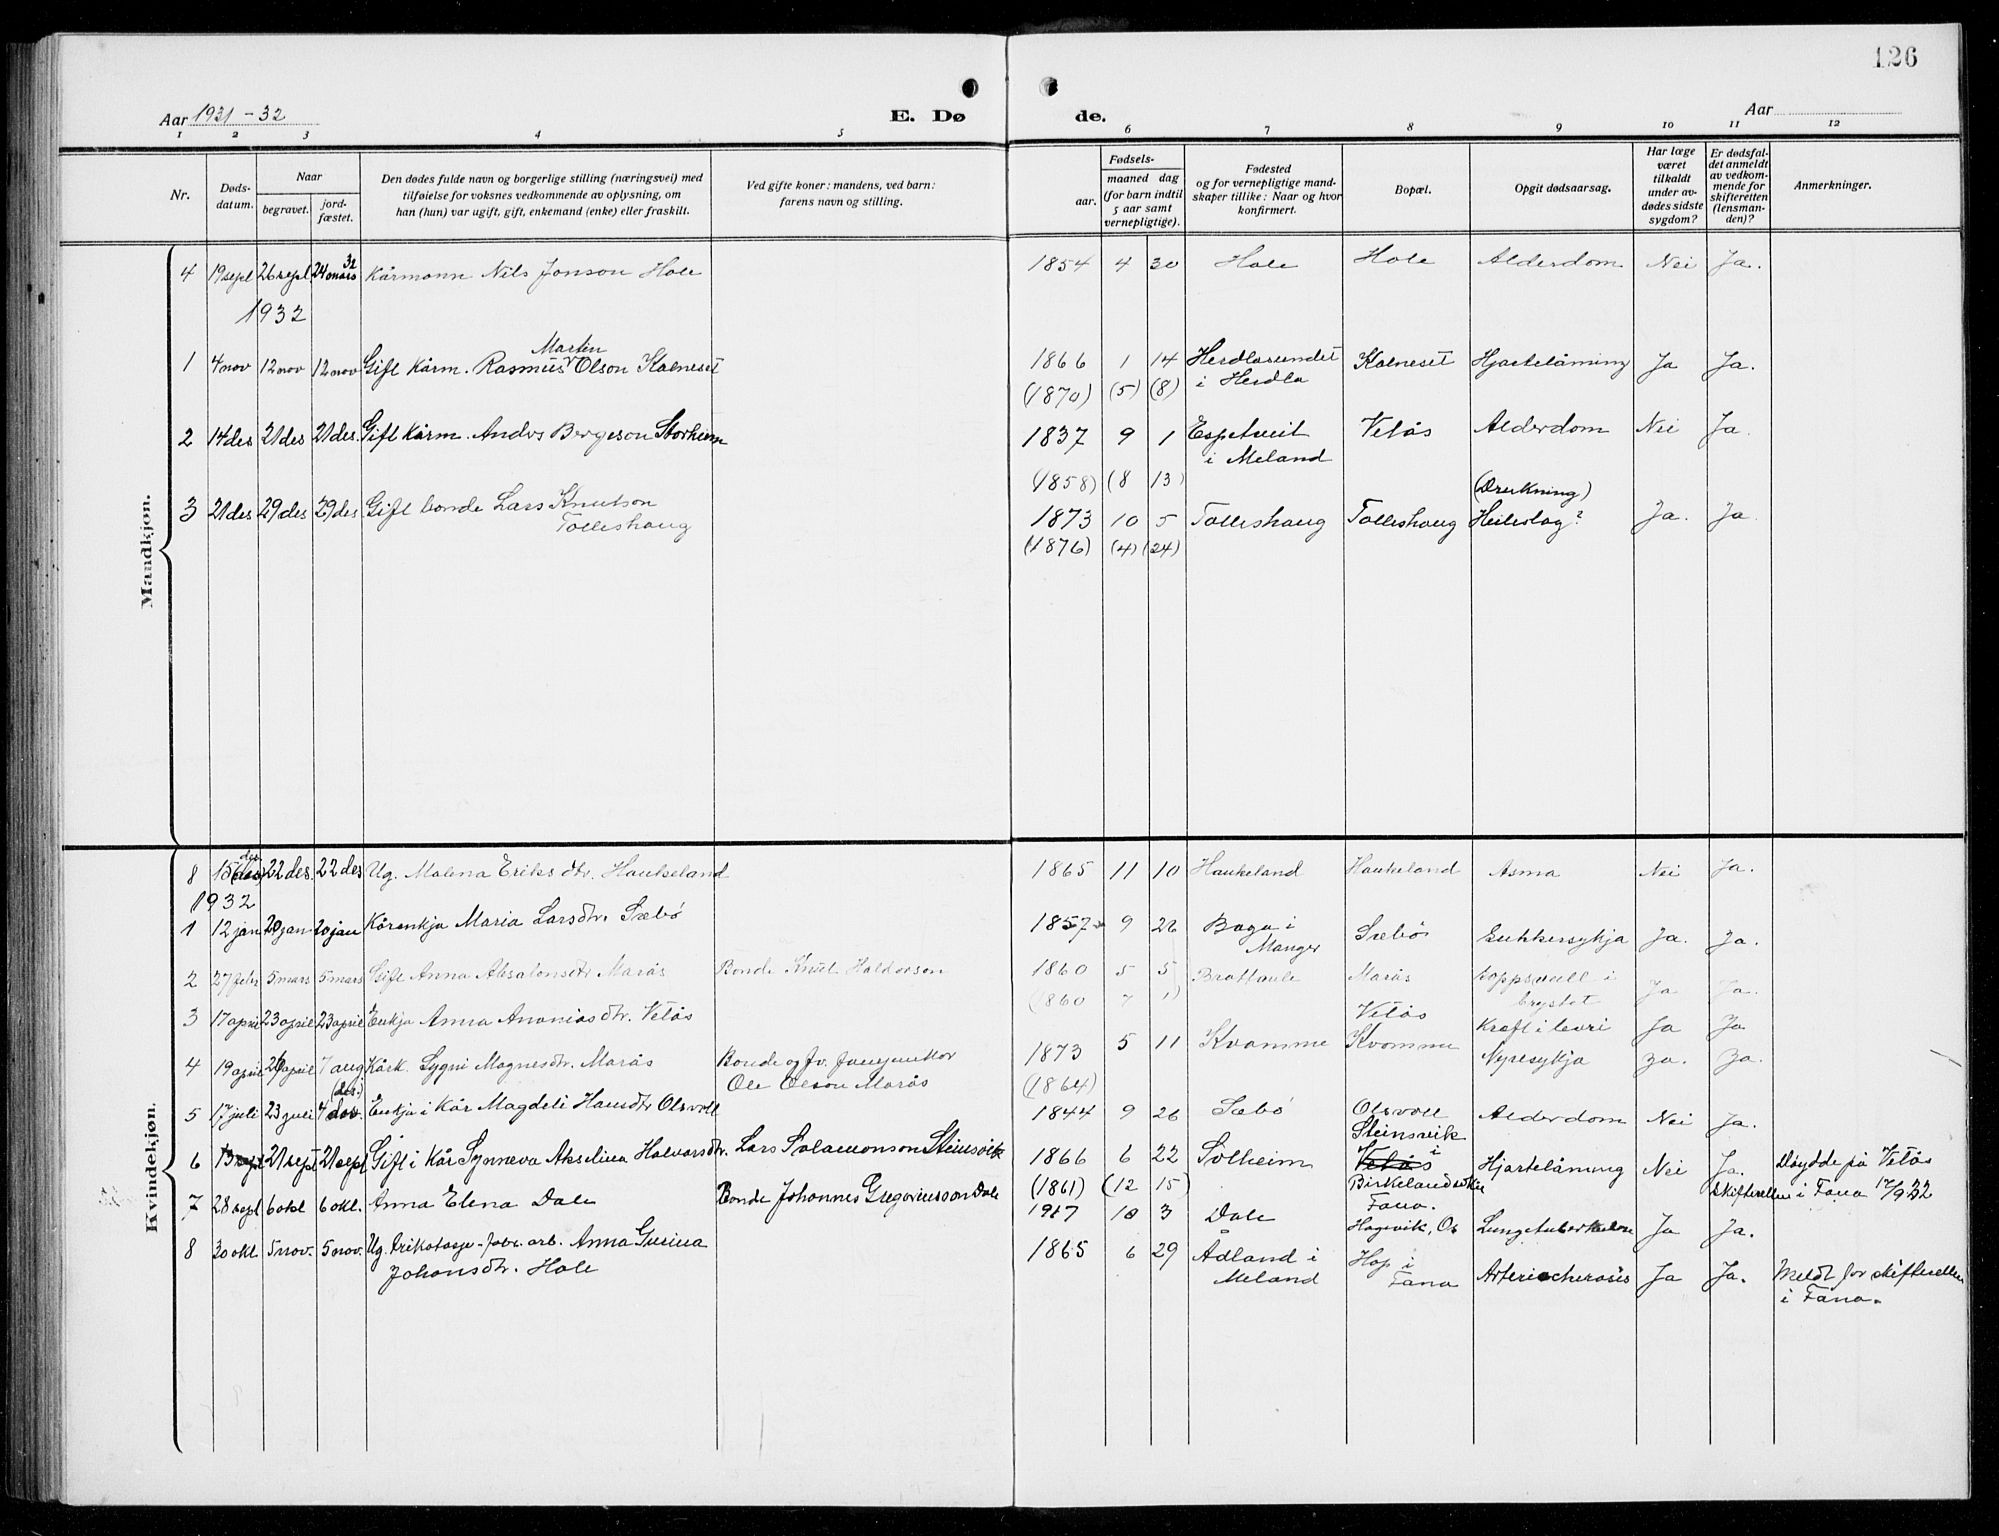 126
Aar 1931-32 E. Dø de. Aar
1 2 3 4 5 6 7 8 9 10 11 12
Nr. Døds-datum. Naar begravet. jord-fæstet. Den dødes fulde navn og borgerlige stilling (næringsvei) med tilføielse for voksnes vedkommende av oplysning, om han (hun) var ugift, gift, enkemand (enke) eller fraskilt. Ved gifte koner: mandens, ved barn: farens navn og stilling. Fødsels- aar. maaned dag (for barn indtil 5 aar samt vernepligtige). Fødested og for vernepligtige mandskaper tillike: Naar og hvor konfirmert. Bopæl. Opgit dødsaarsag. Har læge været tilkaldt under avdødes sidste sygdom? Er dødsfaldet anmeldt av vedkommende for skifteretten (lensmanden)? Anmerkninger.
Mandkjøn.
4 19 sept 26 sept 24 mars 32 Kårmann Nils Jonson Hole 1854 4 30 Hole Hole Alderdom Nei Ja.
1932
1 4 nov 12 nov 12 nov Gift kårm. Rasmus Martin Olson Kalneset 1866 1 14 Herdlasundet Kalneset Hjartelåming Ja Ja.
(1870) (5) (8) i Herdla
2 14 des 21 des 21 des. Gift kårm. Anders Bergeson Storheim 1837 9 1 Espetveit Vetås Alderdom Nei Ja.
i Meland
(1858) (8 13)
3 21 des 29 des 29 des Gift bonde Lars Knutson 1873 10 5 Tolleshaug Tolleshaug (Drukning) Heileslag? Ja. Ja
Tolleshaug
(1876) (4) (24)
Kvindekjøn.
8 15 des (des) 22 des. 22 des Ug. Malena Eriks dtr. Haukeland 1865 11 10 Haukeland Haukeland Asma Nei Ja.
1932
1 12 jan 20 jan 20 jan Kårenkja Maria Larsdtr. Sæbø 1857 9 26 Boga i Manger Sæbø Sukkersykja Ja. Ja.
2 27 febr 5 mars 5 mars Gift Anna Absalonsdtr Marås Bonde Knut Haldorson 1860 5 5 Brattaule Marås i brystet Ja Ja.
(1860 7 1)
3 17 april 23 april 23 april Enkja Anna Ananiasdtr. Vetås Vetås Kreft i levri Ja Ja
5 11 Kvamme Kvamme
4 19 april 26 april 7 aug Kårk. Sygni Magnesdtr. Marås Bonde og fv. 1873 Nyresykja Ja. Ja.
Ole Olson Marås (1864)
5 17 juli 23 juli 4 (des.) Enkja i kår Magdeli Hansdtr Olsvoll 1844 9 26 Sæbø Olsvoll Alderdom Nei Ja.
6 13 sept 21 sept 21 sept Gift i kår Synneva Akselina Halvorsdtr. Lars Salamonson Steinsvik 1866 6 22 Solheim Steinsvik i Vetås Hjartelåming Nei Ja. Døydde på Vetås
(1861) (12 15) Fana. Skifteretten i Fana 17/9 32
7 28 sept 6 okt 6 okt. Anna Elena Dale Bonde Johannes Gregoriusson Dale 1917 10 3 Dale Hagevik, Os Lungetuberkulose Ja Ja.
8 30 okt 5 nov. 5 nov. Ug. trikotasje-fabr. arb. Anna Gurina 1865 6 29 Ådland i Hop i
Johansdtr. Hole Meland Fana Ja Ja. Meldt for skifteretten
i Fana.